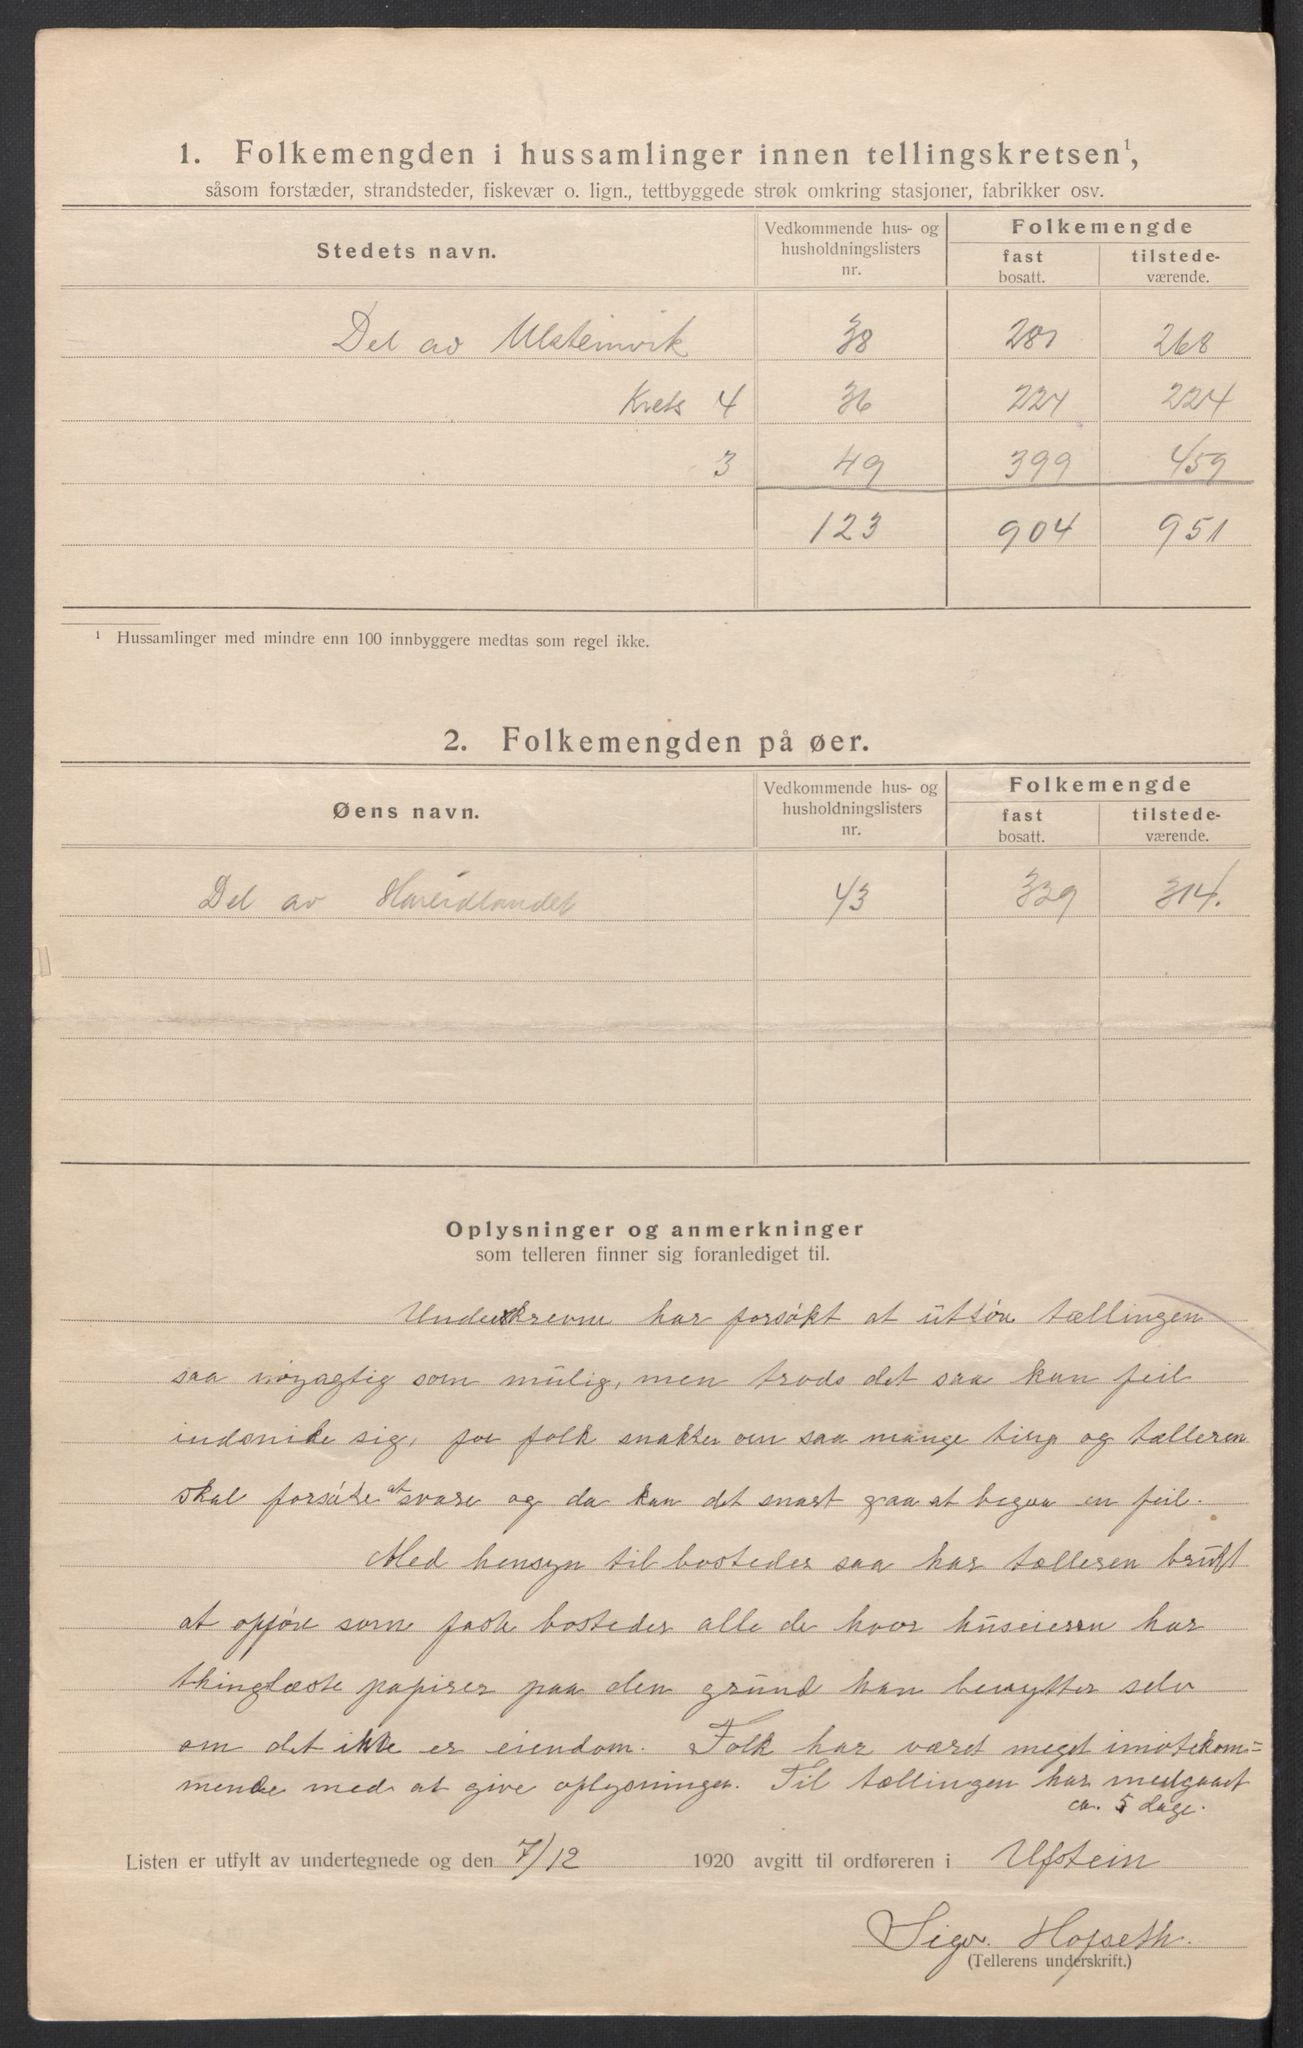 1. Folkemengden i hussamlinger innen tellingskretsen¹,
såsom forstæder, strandsteder, fiskevær o. lign., tettbyggede strøk omkring stasjoner, fabrikker osv.
Stedets navn. Vedkommende hus- og husholdningslisters nr. Folkemengde fast bosatt. tilstedeværende.
Del av Ulsteinvik 38 281 268
Krets 4 36 224 224
3 49 399 459
123 904 951
¹ Hussamlinger med mindre enn 100 innbyggere medtas som regel ikke.
2. Folkemengden på øer.
Øens navn. Vedkommende hus- og husholdningslisters nr. Folkemengde fast bosatt. tilstedeværende.
Del av Hareidlandet 43 339 314.
Oplysninger og anmerkninger
som telleren finner sig foranlediget til.
Underskrevne har forsøkt at utføre tællingen
saa nøyagtig som mulig, men trods det saa kan feil
indsnike sig, for folk snakker om saa mange ting og tælleren
skal forsøke at svare og da kan det snart gaa at begaa en feil.
Med hensyn til bosteder saa har tælleren brukt
at opføre som faste bosteder alle de hvor huseieren har
thinglæste papirer paa den grund han benytter selv
om det ikke er eiendom. Folk har været meget imøtekom=
mende med at give oplysninger. Til tællingen har medgaaet
ca. 5 dage.
Listen er utfylt av undertegnede og den 7/12 1920 avgitt til ordføreren i Ulstein
Sigv. Hofseth.
(Tellerens underskrift.)